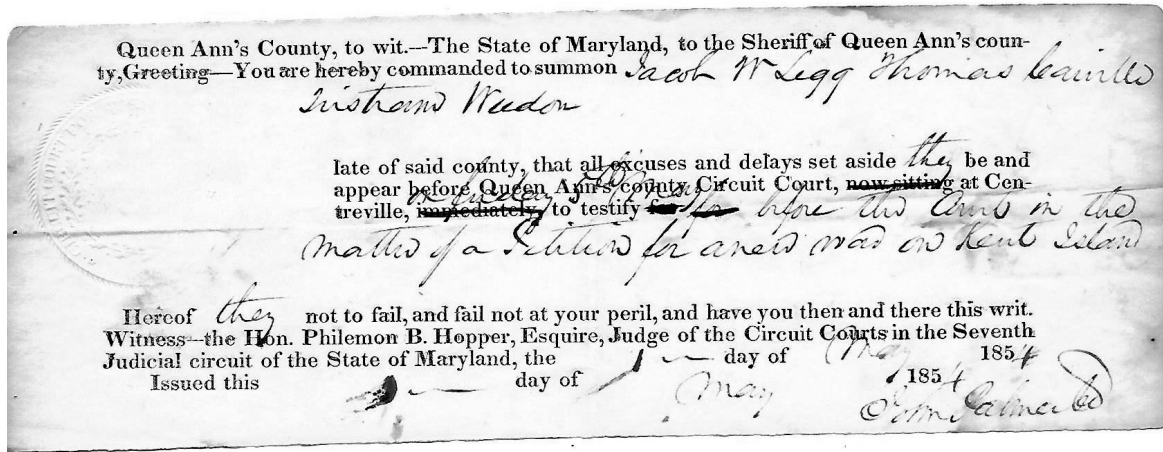 Queen Ann's County, to wit.—The State of Maryland, to the Sheriff of Queen Ann's coun-
ty, Greeting—You are hereby commanded to summon Jacob W Legg Thomas
Tristram Weedon
late of said county, that all excuses and delays set aside they be and
appear before Queen Ann's county Circuit Court, now sitting at Cen-
on May
treville, immediately, to testify for for before the Court in the
matter of a Petition for a new road on Kent Island
Hereof they not to fail, and fail not at your peril, and have you then and there this writ.
Witness—the Hon. Philemon B. Hopper, Esquire, Judge of the Circuit Courts in the Seventh
Judicial circuit of the State of Maryland, the 1 day of May 1854
Issued this day of May 1854
John Palmer Clk